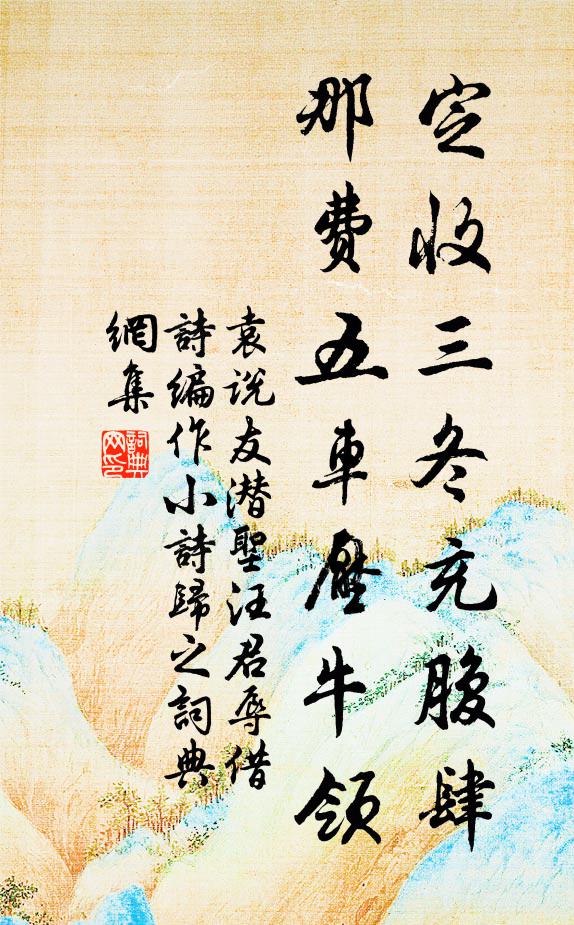 定收三冬充腹肆
那费五車壓牛領
袁说友潜聖汪君辱借
詩编作小詩歸之詞典
網集
詞典网印